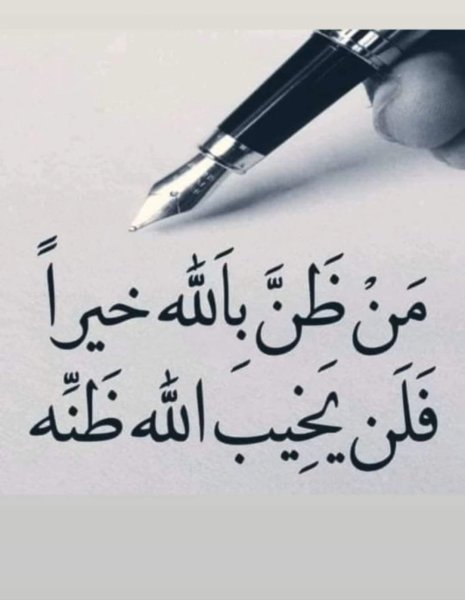 مَنْ ظَنَّ بِاَللّٰه خيراً
فَلَن يَخِيِبَ اللّٰه ظَنِّه